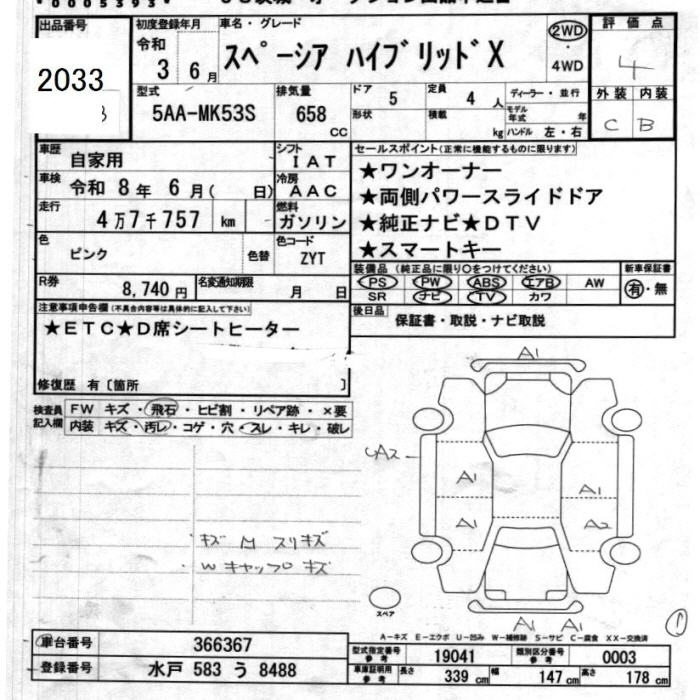 *0005393*
出品番号
2033
初度登録年月
令和
3 6月
車名・グレード
スペーシア ハイブリッドX
2WD
・
4WD
評価点
4
外装 内装
C B
型式
5AA-MK53S
排気量
658
CC
ドア
5
定員
4 人
形状
積載
kg
ディーラー・並行
モデル
年式 年
ハンドル 左・右
車歴
自家用
シフト
IAT
車検
令和 8年 6月( 日)
冷房
AAC
走行
4万7千757 km
燃料
ガソリン
色
ピンク
色替
色コード
ZYT
R券
8,740円
名変通知期限
月 日
セールスポイント(正常に機能するものに限ります)
★ワンオーナー
★両側パワースライドドア
★純正ナビ★DTV
★スマートキー
装備品(純正品に限り○をつけてください)
PS PW ABS エアB AW
SR ナビ TV カワ
新車保証書
有・無
後日品
保証書・取説・ナビ取説
注意事項申告欄(不具合内容等は具体的に記入して下さい)
★ETC★D席シートヒーター
修復歴 有〔箇所 〕
検査員
記入欄
FW キズ・飛石・ヒビ割・リペア跡・×要
内装 キズ・汚レ・コゲ・穴・スレ・キレ・破レ
キズ M スリキズ
W キャップ キズ
A1
A2
A1 A1
A1 A2
A1 A1
スペア
1
A-キズ E-エクボ U-凹み W-補修跡 S-サビ C-腐食 XX-交換済
車台番号
366367
登録番号
水戸 583 う 8488
型式指定番号
参考
19041
類別区分番号
参考
0003
車庫証明用
参考
長さ
339 cm
幅
147 cm
高さ
178 cm